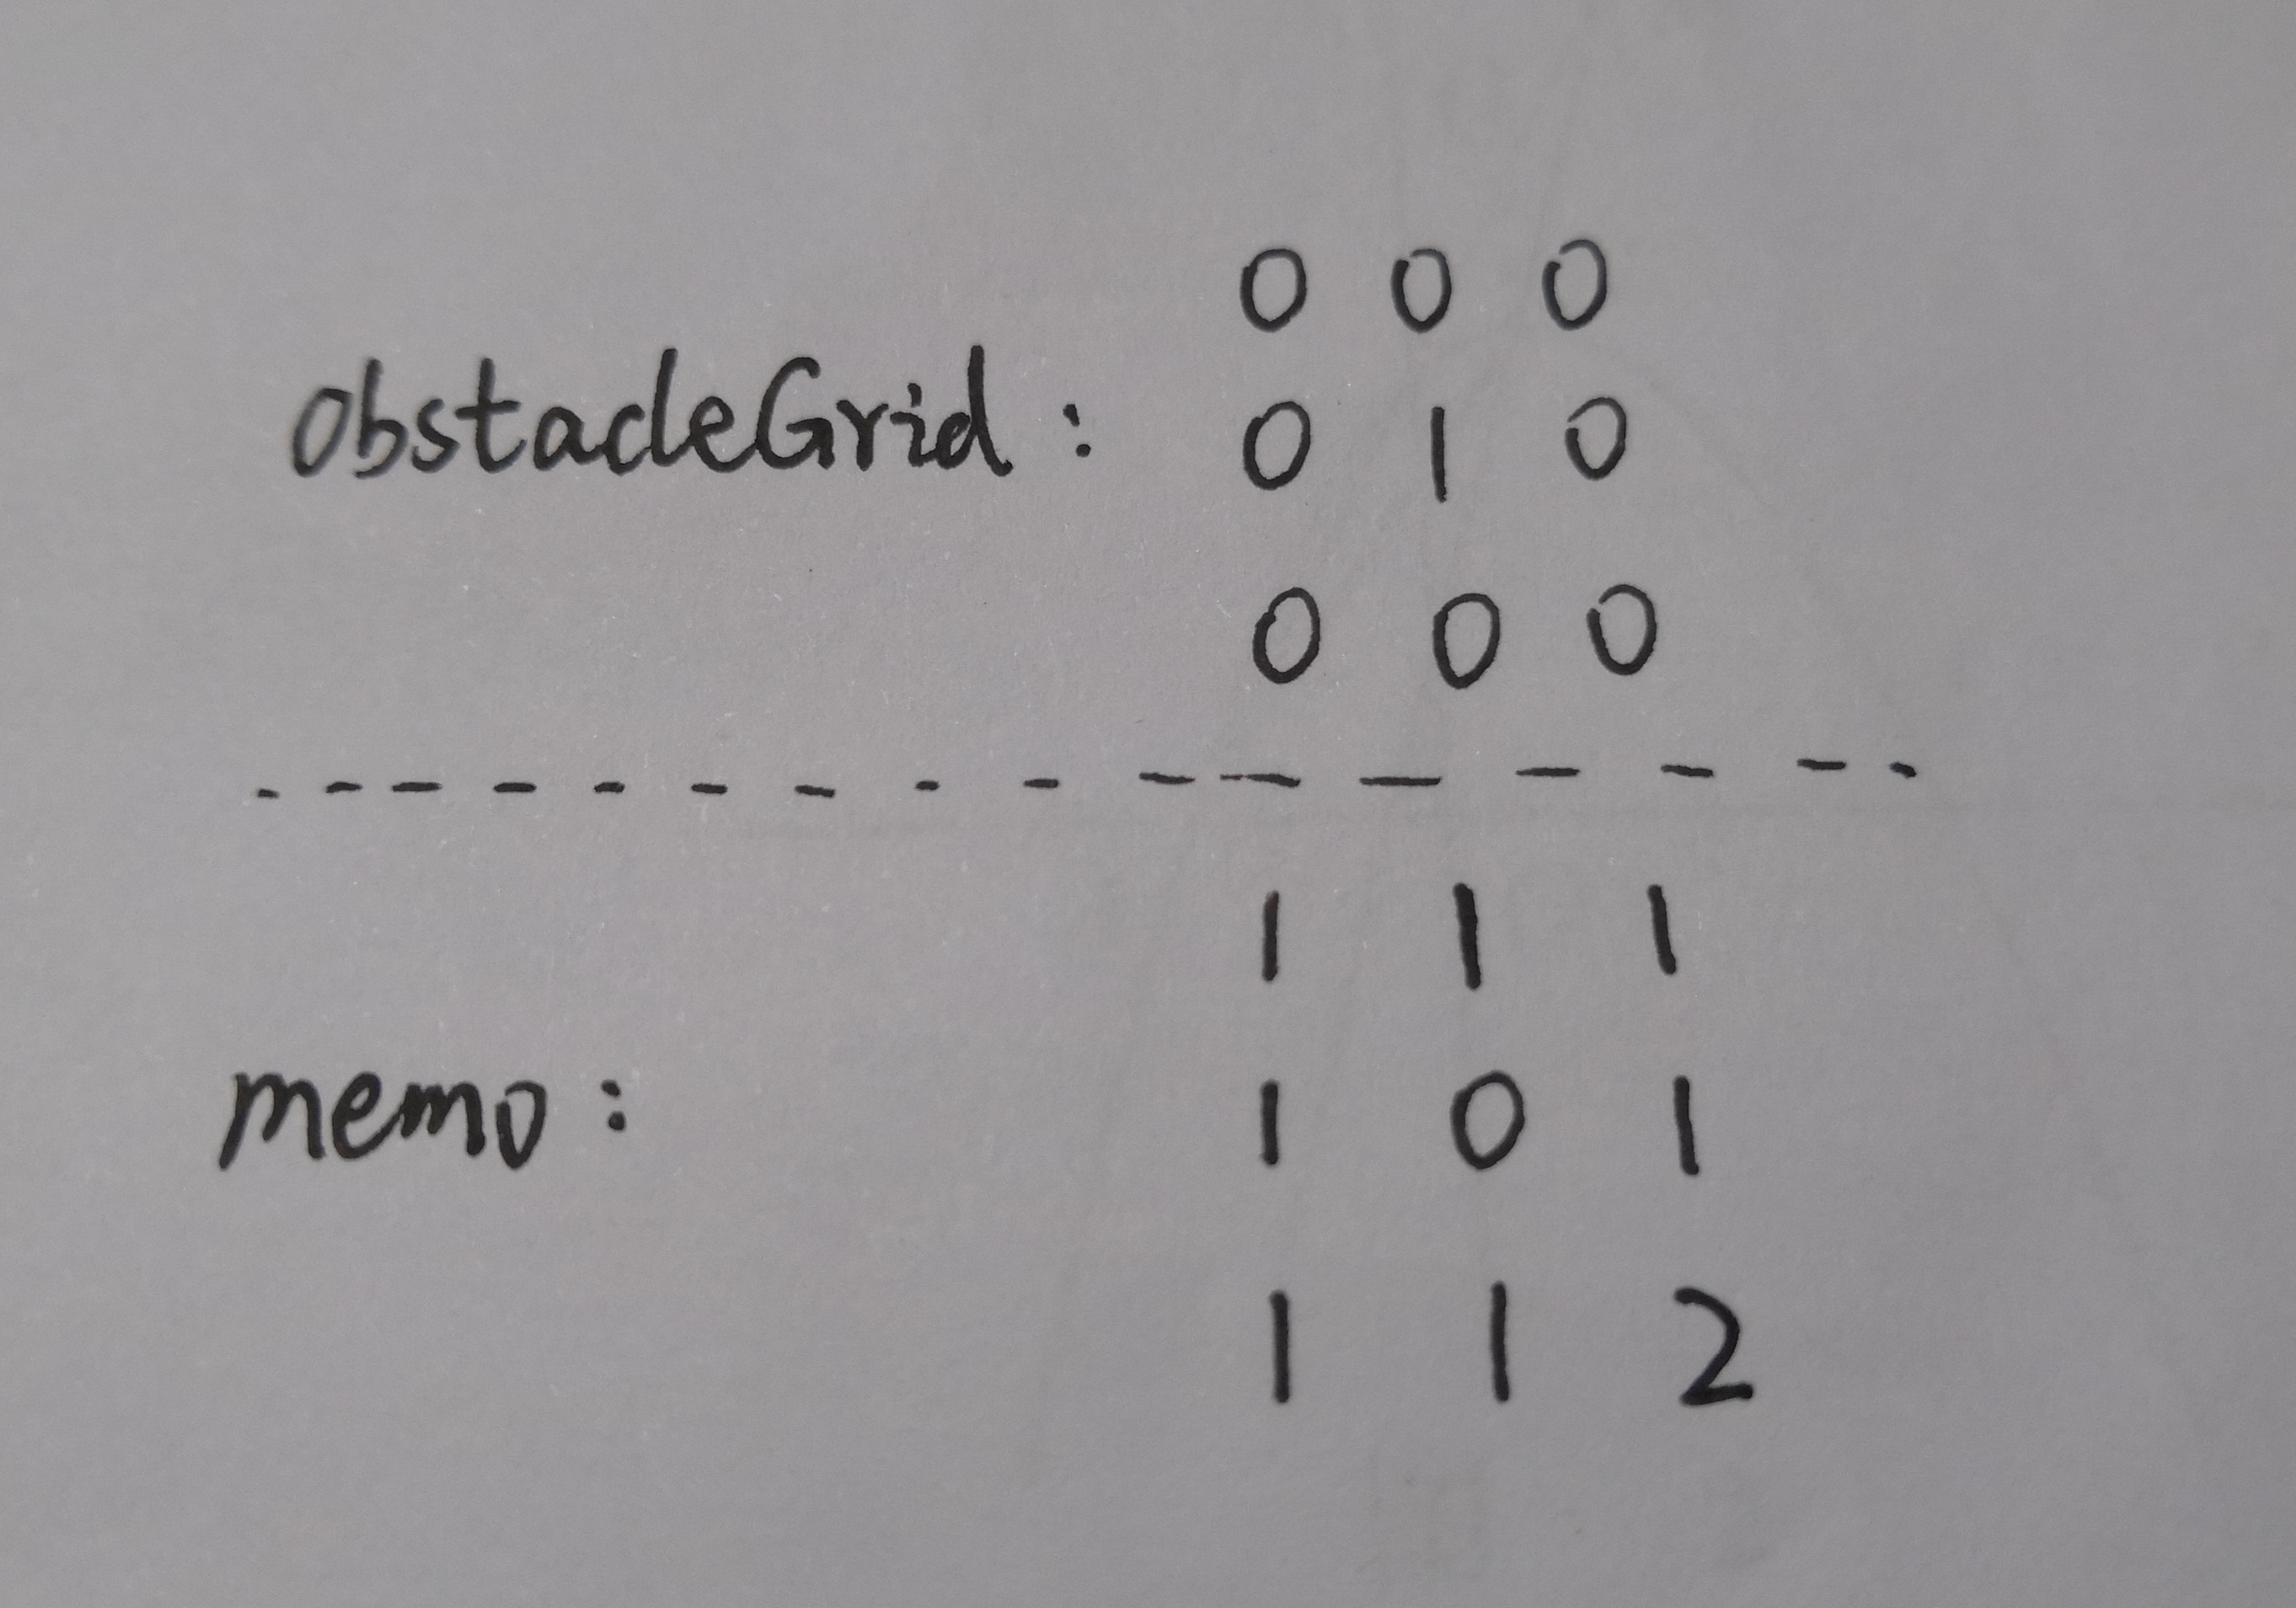 0 0 0
obstacleGrid : 0 1 0
0 0 0
1 1 1
memo : 1 0 1
1 1 2